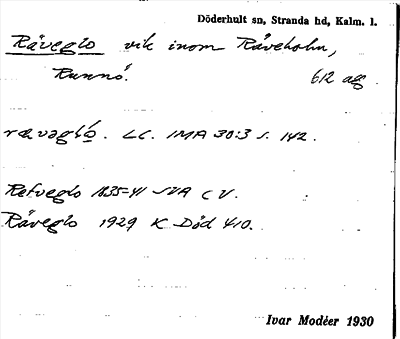 Döderhult sn, Stranda hd, Kalm. l.
Räveglo vik inom Råveholm,
Runnö. 612 ag
rævəglo̱. LC. IMA 30:3 s. 142.
Refveglo 1835-41 SVA C V.
Räveglo 1929 K Död 410.
Ivar Modéer 1930